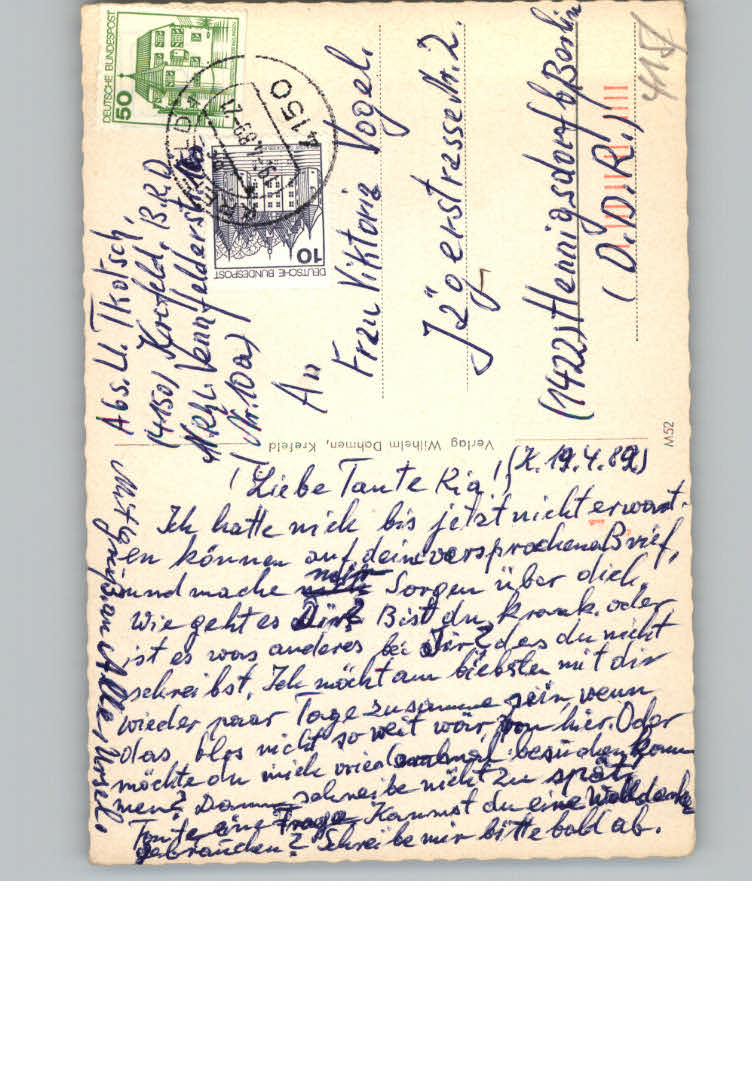 Abs. U. Tkotsch.
(4150) Krefeld. B.R.D
Vennfelderstrasse
(Nr. 10a)
DEUTSCHE BUNDESPOST
50
DEUTSCHE BUNDESPOST
10
4150
An
Frau Viktoria Vogel.
Jägerstrasse Nr. 2.
(1422) Hennigsdorf b/Berlin
(D.D.R.)
415
Verlag Wilhelm Dahmen, Krefeld
M52
! Liebe Tante Ria! (K. 19.4.89)
Ich hatte mich bis jetzt nicht erwart-
en können auf dein versprochena Brief,
und mache mir Sorgen über dich.
Wie geht es Dir? Bist du krank. oder
ist es was anderes bei Dir? das du nicht
schreibst. Ich möcht am liebsten mit dir
wieder paar Tage zusamme sein, wenn
das blos nicht so weit wär, von hier. Oder
möchte du mich besuchen komm
men? Dann schreibe nicht zu spät.
Tante eine Frage Kannst du eine Wolldecke
gebrauchen? Schreibe mir bitte bald ab.
Mit Grüß an Alle Ursel.